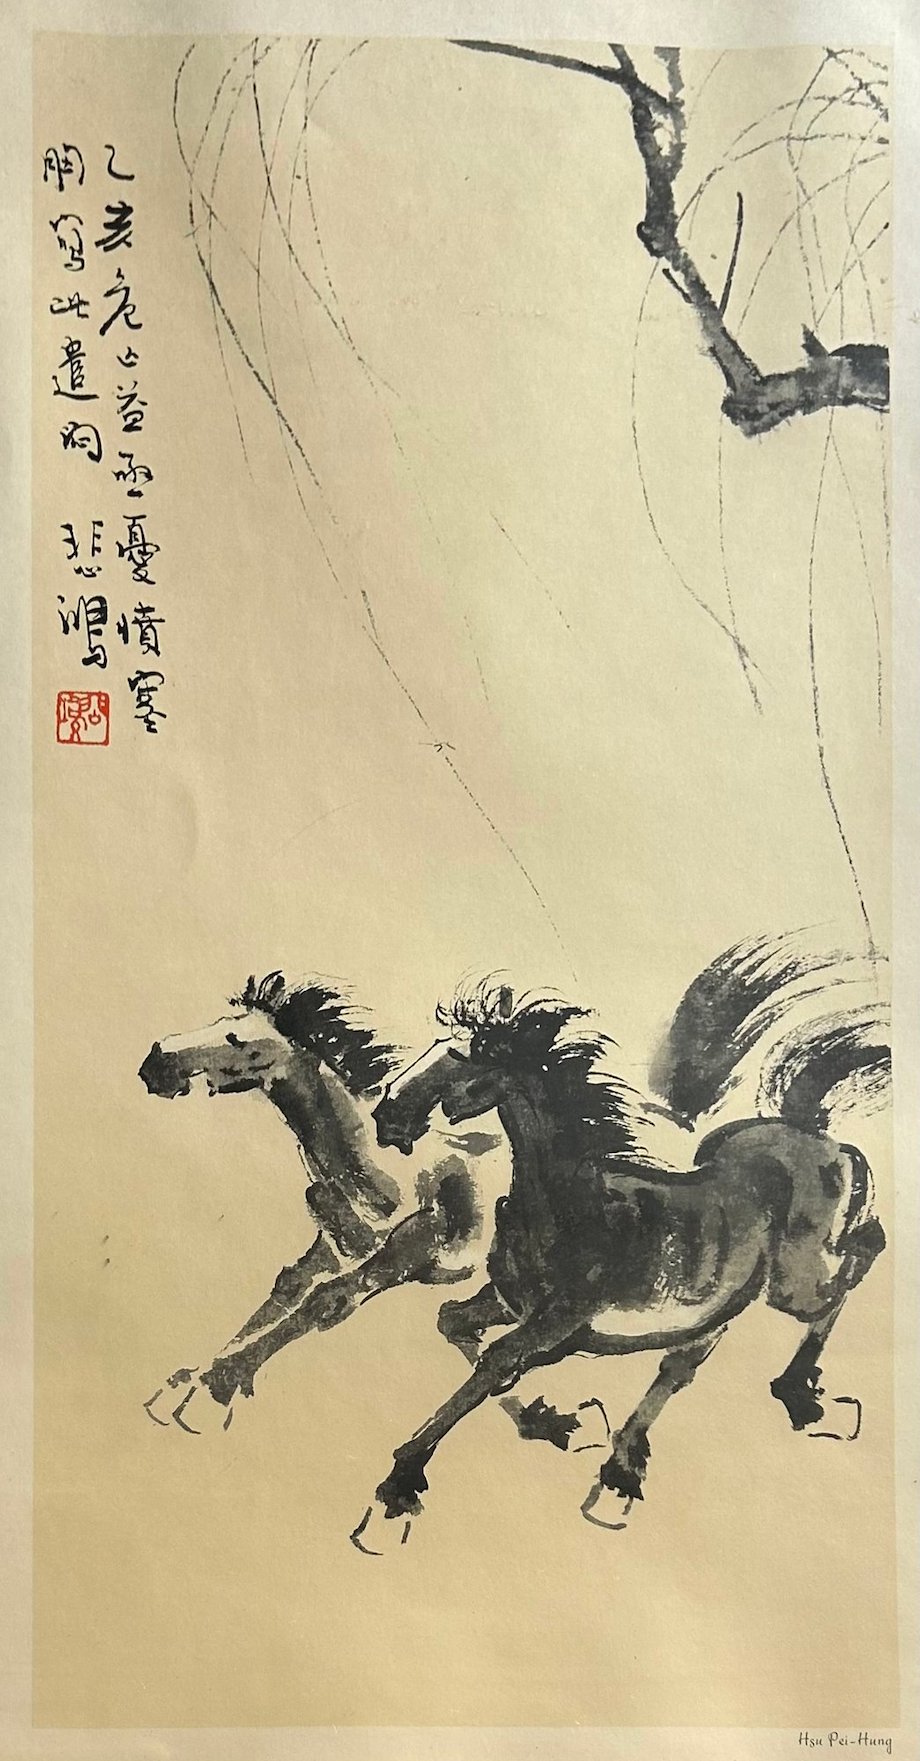 乙亥危亡益亟憂憤塞
胸寫此遣悶 悲鴻
Hsu Pei-Hung